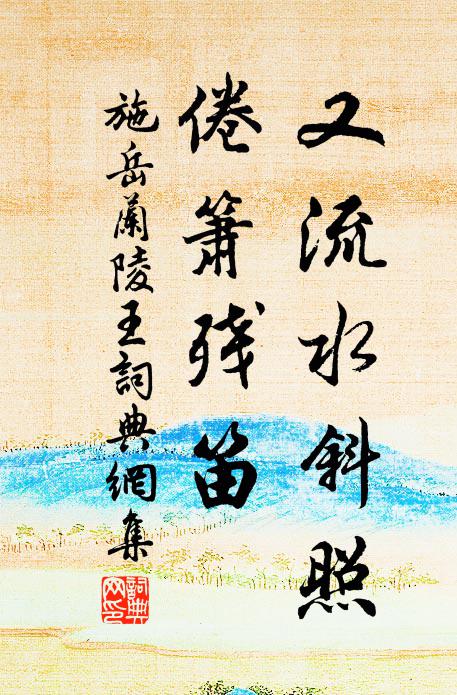 又流水斜照
倦箫残笛
施岳蘭陵王詞典網集